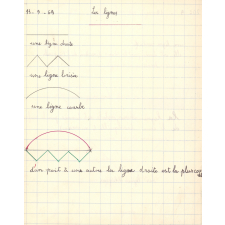 11-3-64 Les lignes
une ligne droite
une ligne brisée
une ligne courbe
d'un point à une autre la ligne droite est la plus